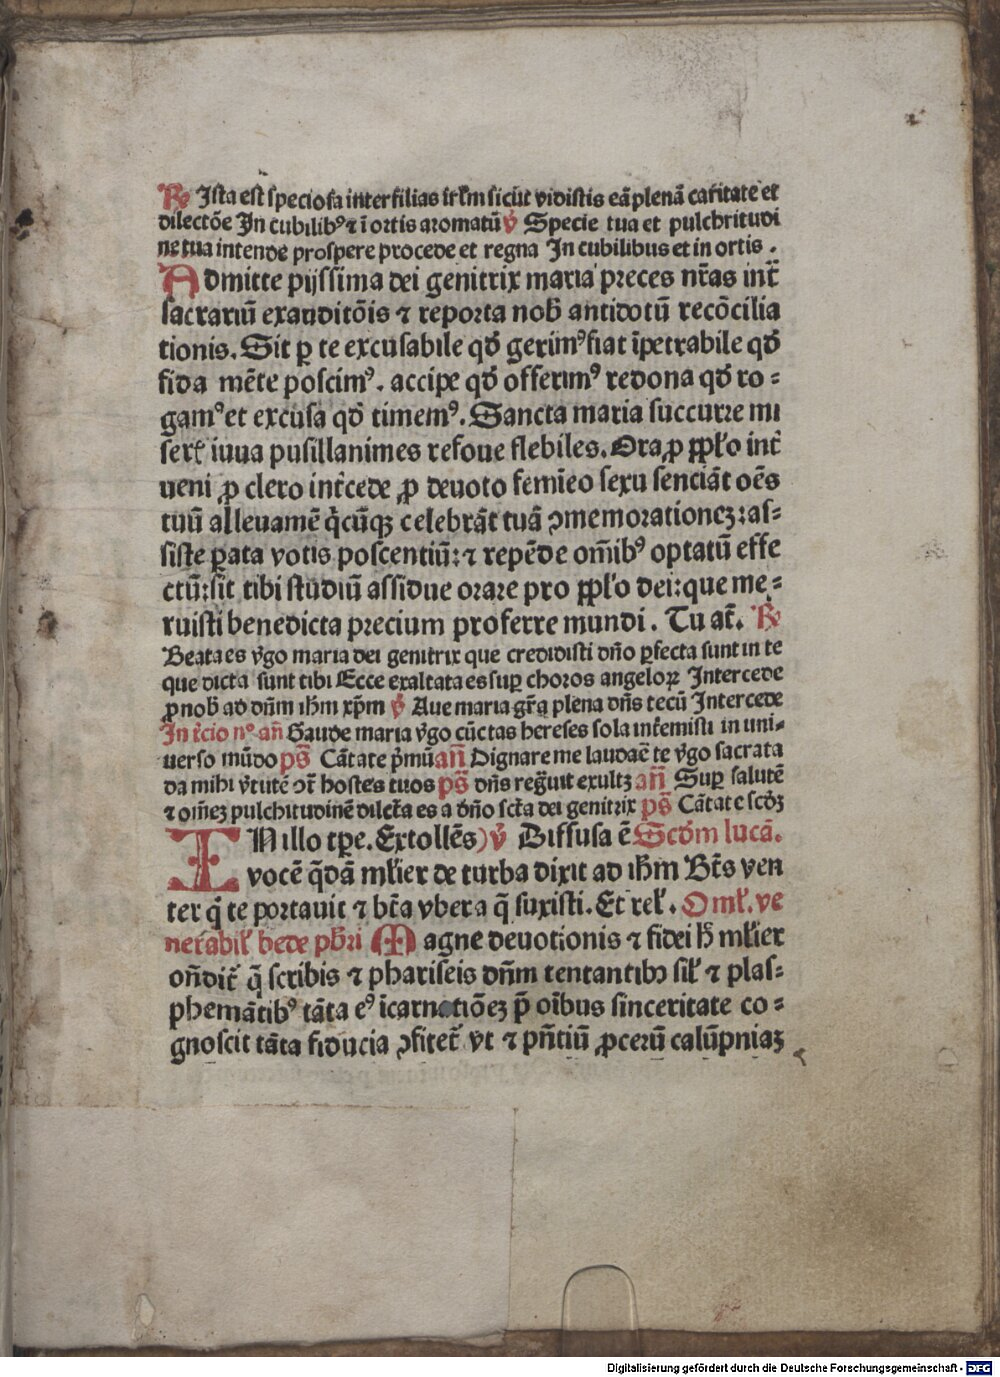 ℟ Ista est speciosa inter filias irl̄m sicut vidistis eā plenā caritate et
dilectōe In cubilibꝰ ⁊ ī ortis aromatū ℣ Specie tua et pulchritudi
ne tua intende prospere procede et regna In cubilibus et in ortis .
Admitte pijssima dei genitrix maria preces nr̄as int̄
sacrariū exauditōis ⁊ reporta nob̄ antidotū recōcilia
tionis. Sit ꝑ te excusabile qd̄ gerimꝰ fiat īpetrabile qd̄
fida mēte poscimꝰ. accipe qd̄ offerimꝰ redona qd̄ ro⸗
gamꝰ et excusa qd̄ timemꝰ. Sancta maria succurre mi
seris iuua pusillanimes refoue flebiles. Ora ꝓ ppl̄o int̄
ueni ꝓ clero int̄cede ꝓ deuoto femīeo sexu senciāt oēs
tuū alleuamē q̄cūqꝫ celebrāt tuā ꝯmemorationeꝫ: as⸗
siste ꝑata votis poscentiū: ⁊ repēde om̄ibꝰ optatū effe
ctū: sit tibi studiū assidue orare pro ppl̄o dei: que me⸗
ruisti benedicta precium proferre mundi . Tu at̄. ℟
Beata es v̄go maria dei genitrix que credidisti dn̄o ꝑfecta sunt in te
que dicta sunt tibi Ecce exaltata es suꝑ choros angeloꝝ Intercede
ꝓ nob̄ ad dn̄m ihm̄ xp̄m ℣ Aue maria gr̄a plena dn̄s tecū Intercede
In t̄cio nꝰ an̄ Gaude maria v̄go cūctas hereses sola int̄emisti in uni⸗
uerso mūdo ps̄ Cātate p̄mū an̄ Dignare me laudaē te v̄go sacrata
da mihi v̄tutē ꝯt̄ hostes tuos ps̄ dn̄s regn̄uit exultꝫ an̄ Suꝑ salutē
⁊ om̄eꝫ pulchitudinē dilect̄a es a dn̄o sct̄a dei genitrix ps̄ Cātate scd̄ꝫ
IN illo tꝑe. Extollēs) ℣ Diffusa ē Scd̄m lucā.
vocē q̄dā ml̄ier de turba dixit ad ihm̄ Bt̄s ven
ter q̄ te portauit ⁊ bt̄a vbera q̄ suxisti. Et rel̄ . Oml̄. ve
nerabil̄ bede pbr̄i Magne deuotionis ⁊ fidei h̄ ml̄ier
on̄dit̄ q̄ scribis ⁊ phariseis dn̄m tentantibꝫ sil̄ ⁊ plas⸗
phemātibꝰ tāta eꝰ īcarnationēꝫ p̄ oībus sinceritate co⸗
gnoscit tāta fiducia ꝯfitet̄ vt ⁊ pn̄tiū ꝓcerū calūpniaꝫ
Digitalisierung gefördert durch die Deutsche Forschungsgemeinschaft - DFG